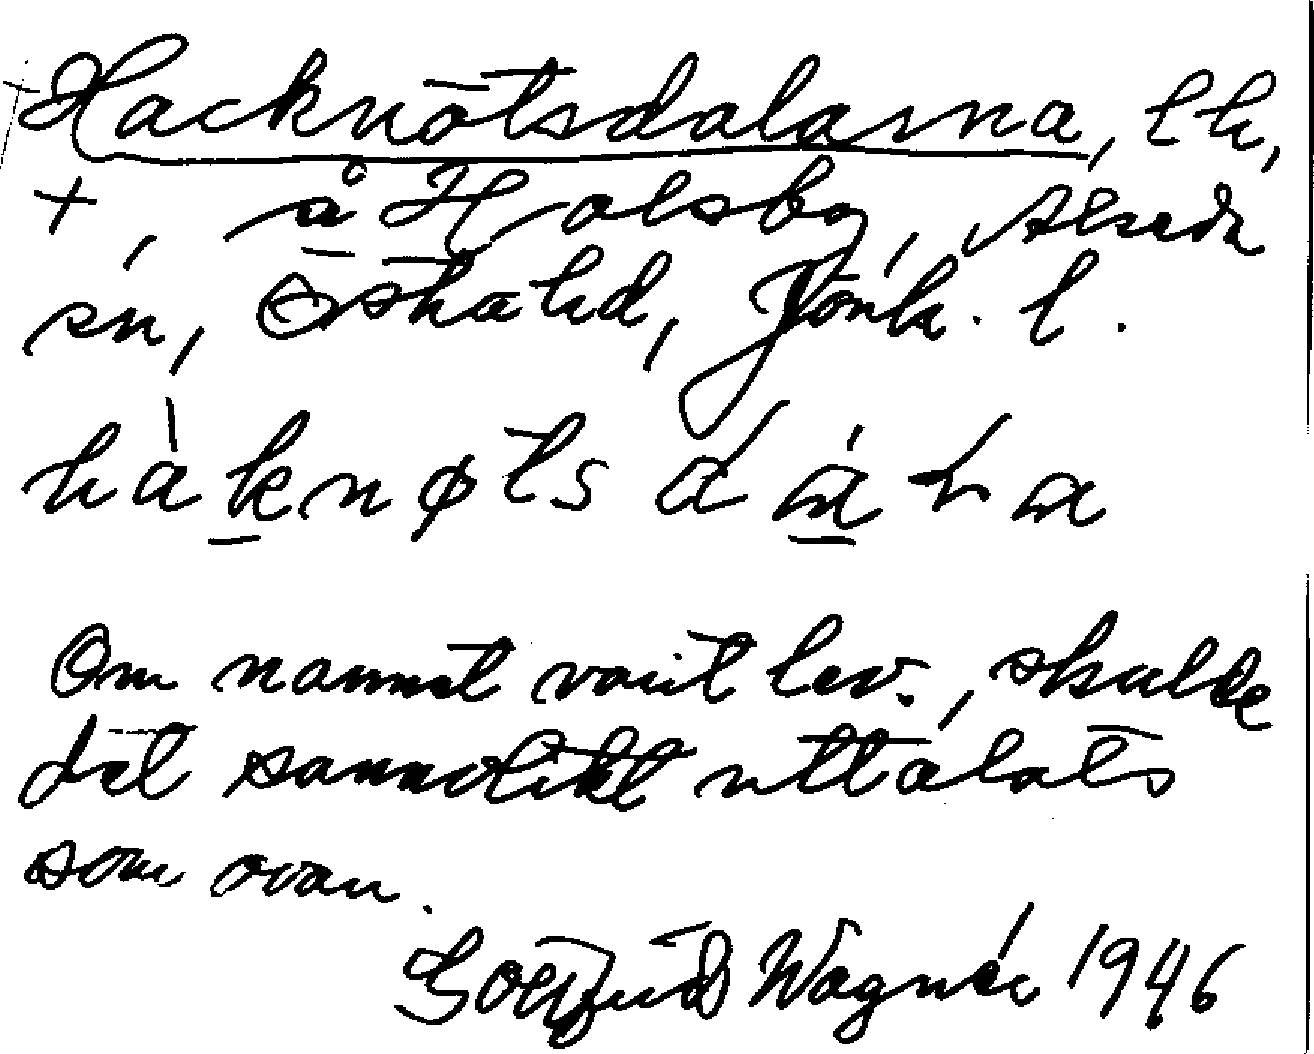 Hacknötsdalarna, lk,
+, å Holsby, Alseda
sn, Östra hd, Jönk. l.
Om namnet varit lev., skulle
det sannolikt uttalats
som ovan.
Gottfrid Wagnér 1946